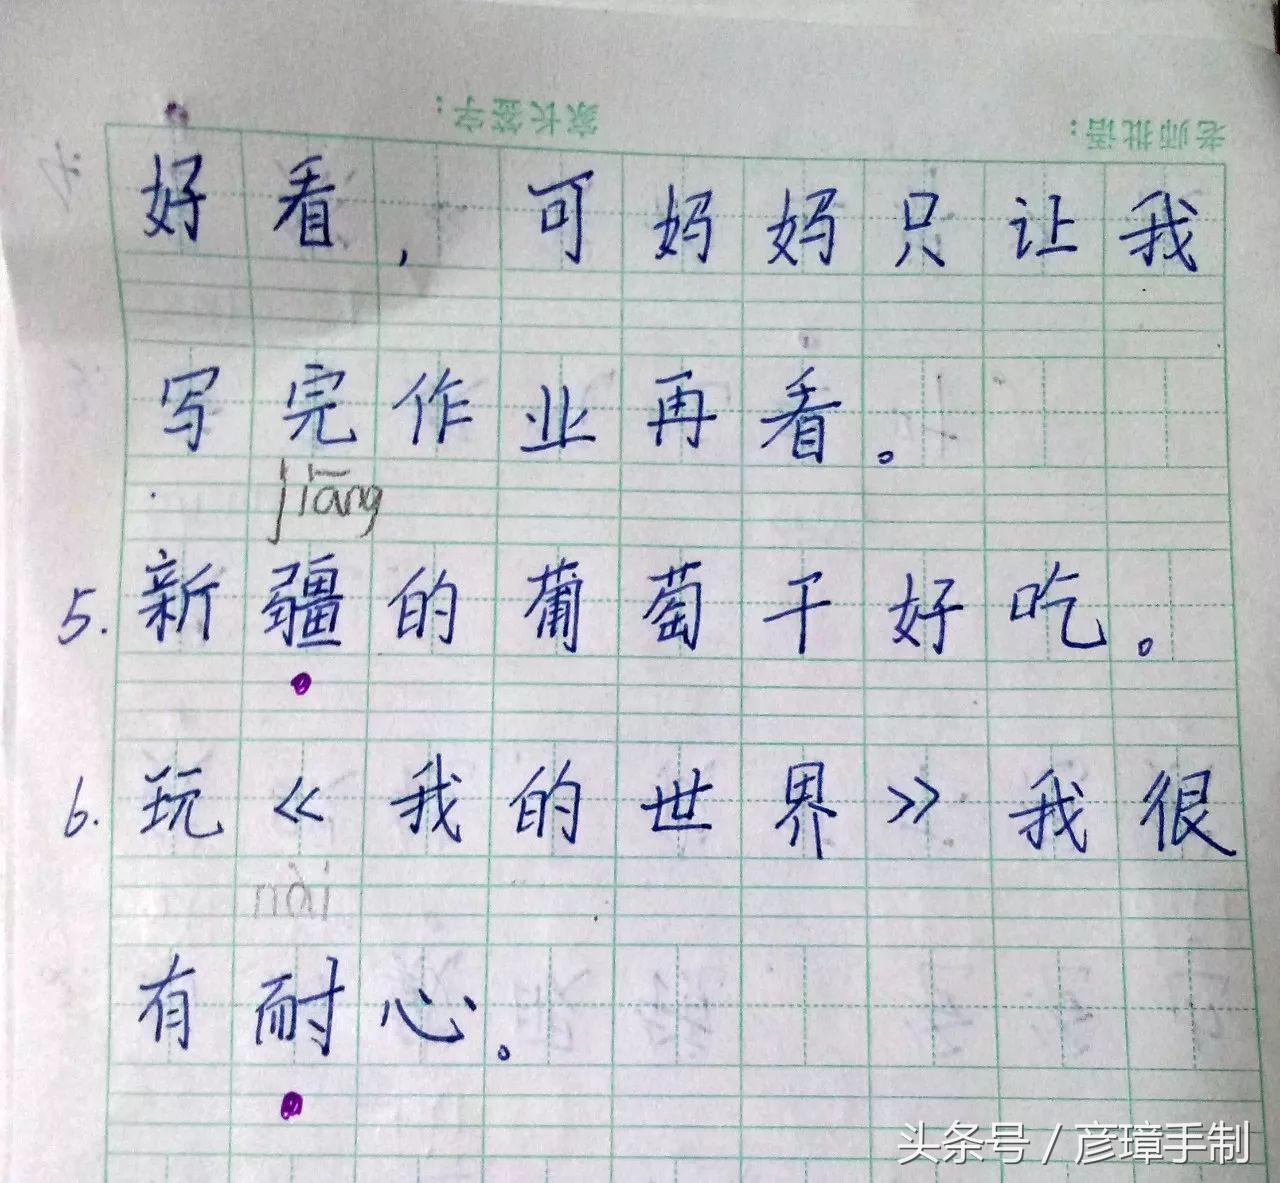 家长签字：	老师批语：
好看，可妈妈只让我
写完作业再看。
jiāng
5.新疆的葡萄干好吃。
6.玩《我的世界》我很
nài
有耐心。
头条号/彦璋手制